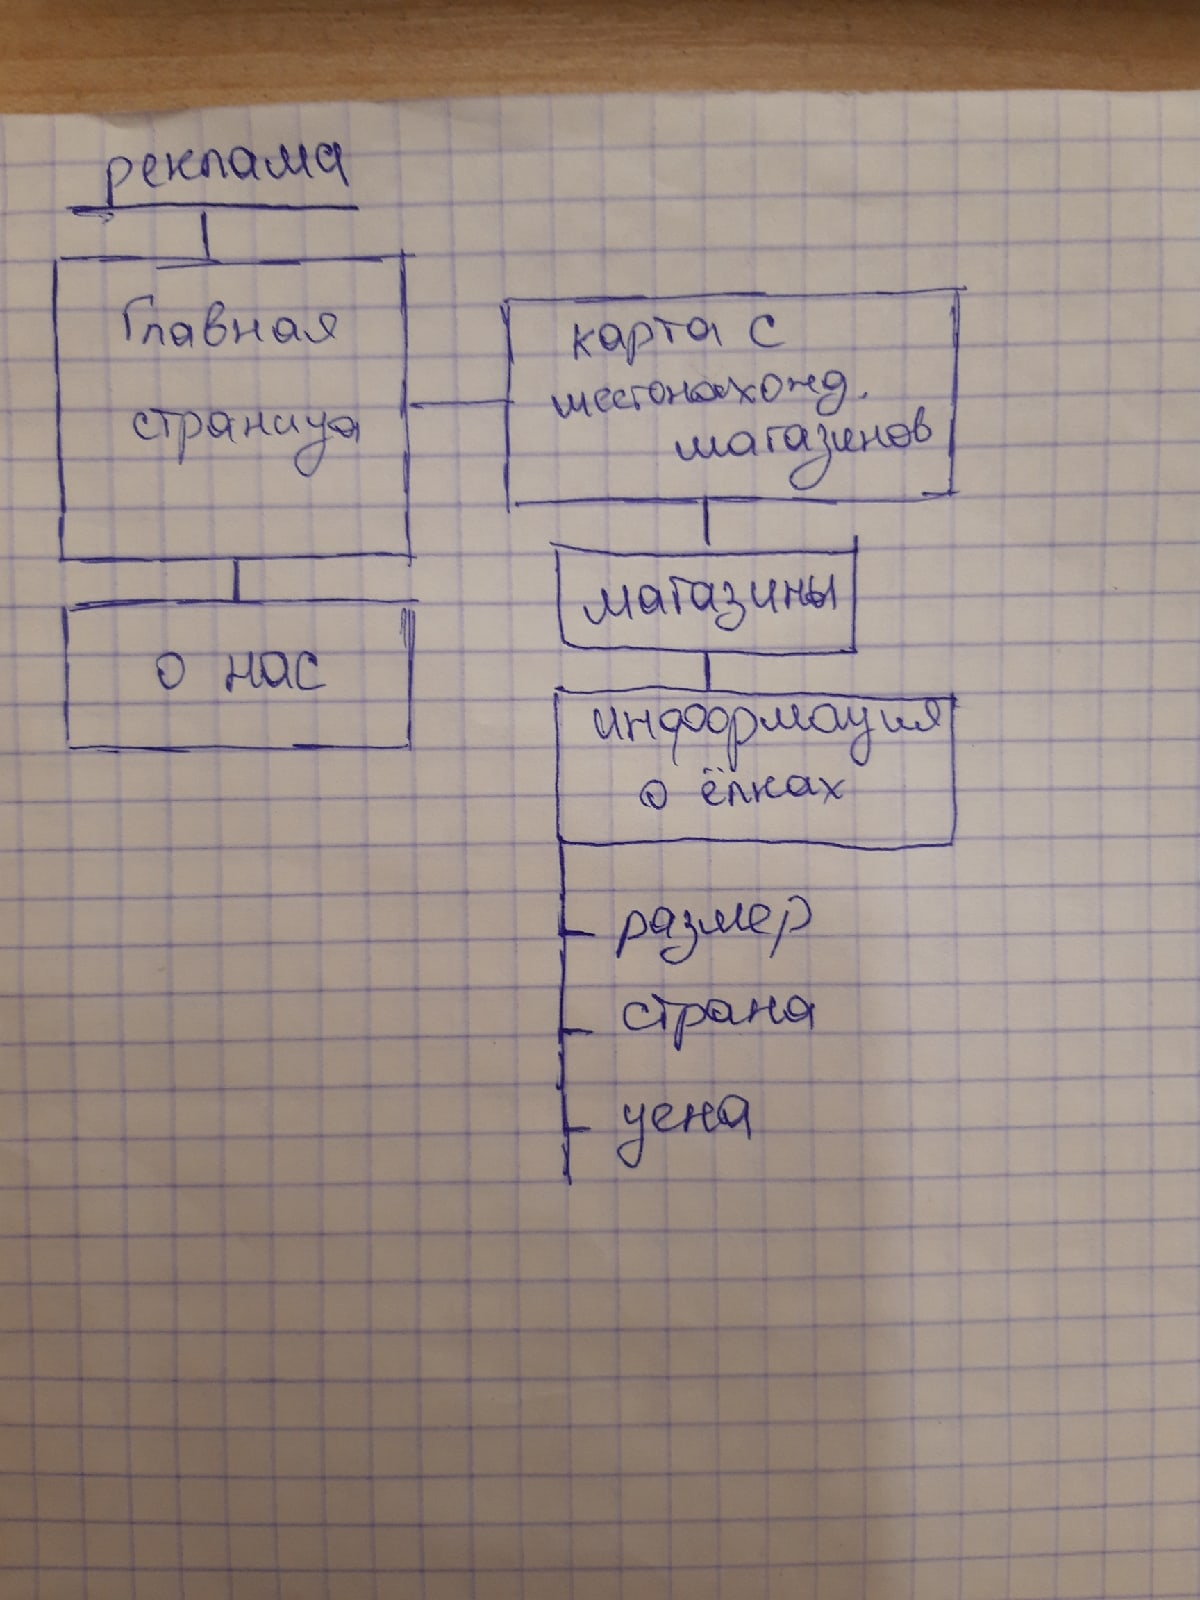 реклама
Главная
страница
карта с
местонахожд.
магазинов
магазины
о нас
информация
о ёлках
размер
страна
цена